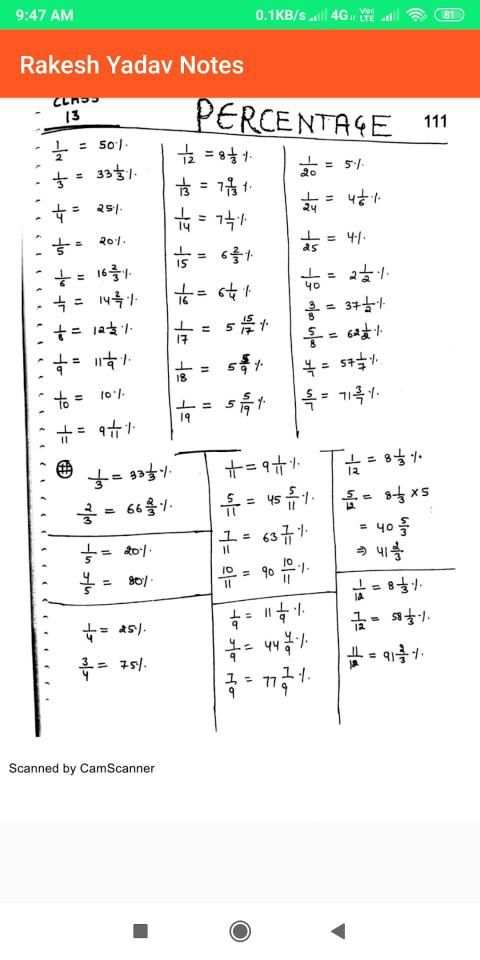 9:47 AM
0.1KB/s 4G Vo LTE 81
Rakesh Yadav Notes
CLASS
13
PERCENTAGE 111
1/2 = 50%
1/3 = 33 1/3 %
1/4 = 25%
1/5 = 20%
1/6 = 16 2/3 %
1/7 = 14 2/7 %
1/8 = 12 1/2 %
1/9 = 11 1/9 %
1/10 = 10%
1/11 = 9 1/11 %
1/12 = 8 1/3 %
1/13 = 7 9/13 %
1/14 = 7 1/7 %
1/15 = 6 2/3 %
1/16 = 6 1/4 %
1/17 = 5 15/17 %
1/18 = 5 5/9 %
1/19 = 5 5/19 %
1/20 = 5%
1/24 = 4 1/6 %
1/25 = 4%
1/40 = 2 1/2 %
3/8 = 37 1/2 %
5/8 = 62 1/2 %
4/7 = 57 1/7 %
5/7 = 71 3/7 %
1/3 = 33 1/3 %
2/3 = 66 2/3 %
1/5 = 20%
4/5 = 80%
1/4 = 25%
3/4 = 75%
1/11 = 9 1/11 %
5/11 = 45 5/11 %
7/11 = 63 7/11 %
10/11 = 90 10/11 %
1/9 = 11 1/9 %
4/9 = 44 4/9 %
7/9 = 77 7/9 %
1/12 = 8 1/3 %
5/12 = 8 1/3 × 5
= 40 5/3
⇒ 41 2/3
1/12 = 8 1/3 %
7/12 = 58 1/3 %
11/12 = 91 2/3 %
Scanned by CamScanner